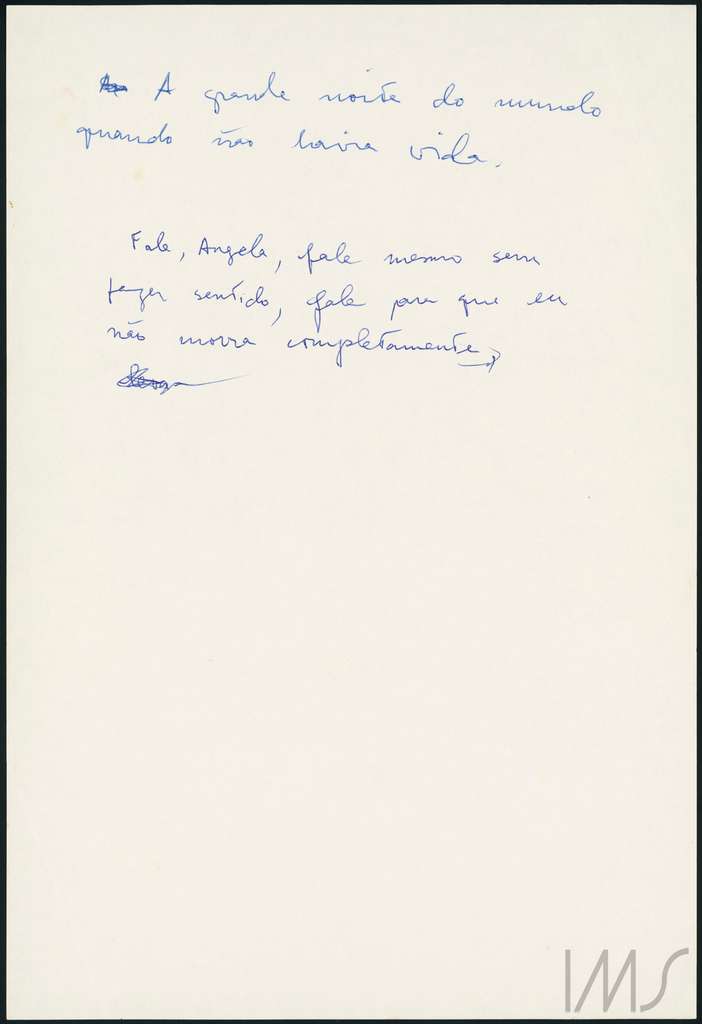 A grande noite do mundo
quando não havia vida.
Fale, Angela, fale mesmo sem
fazer sentido, fale para que eu
não morra completamente
IMS